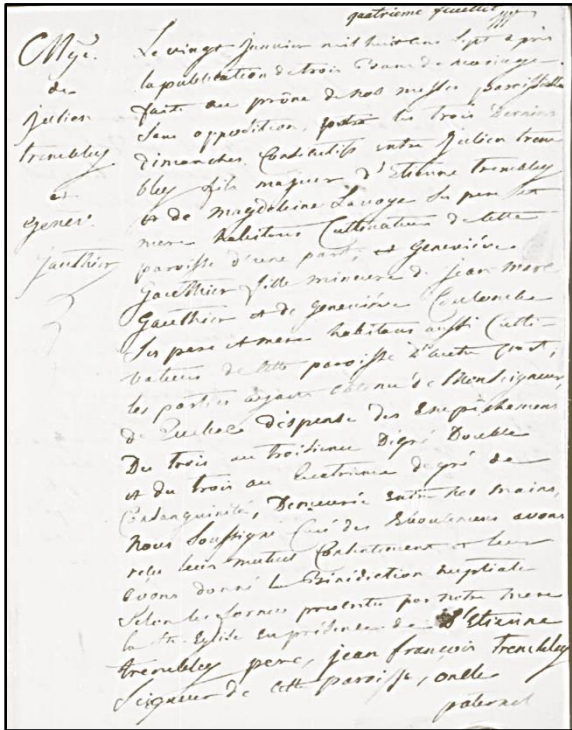 quatrieme feuillet
Mge.
de
Julien
trembley
et
genev.
gauthier
Le vingt Janvier mil huit cens sept après
la publication de trois Bans de mariage
faite au prône de nos messes paroissiales
sans opposition, les trois derniers
dimanches Consécutifs entre Julien trem-
bley fils majeur d'Etienne trembley
et de magdeleine Lavoye ses pere et
mere habitans Cultivateurs de cette
paroisse d'une part; et Geneviéve
Gauthier fille mineure de jean marc
Gauthier et de geneviéve Coulombe
ses pere et mere habitans aussi Culti-
vateurs de cette paroisse d'autre part;
les parties ayant obtenu de Monseigneur
de dispense des Empêchemens
Du trois au troisieme Dégré Double
et du trois au quatrieme degré de
Consanguinité, Demeurée entre nos mains,
Nous Soussigné Curé des Eboulemens avons
reçu leur mutuel Consentement et leur
avons donné la Bénédiction nuptiale
Selon les formes prescrites par notre mere
la Ste Eglise en présence de d'Etienne
trembley pere, jean françois trembley
Seigneur de cette paroisse, oncle
paternel